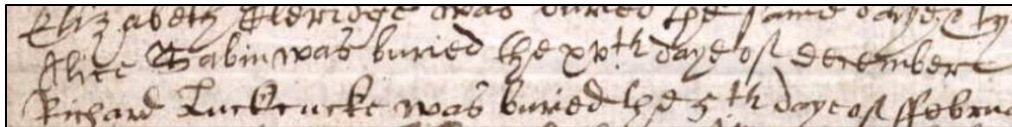 Elizabeth Aldridge was buried the same daye
Alice Sabin was buried the xvth daye of december
Richard Luckcucke was buried the 5th daye of ffebrua